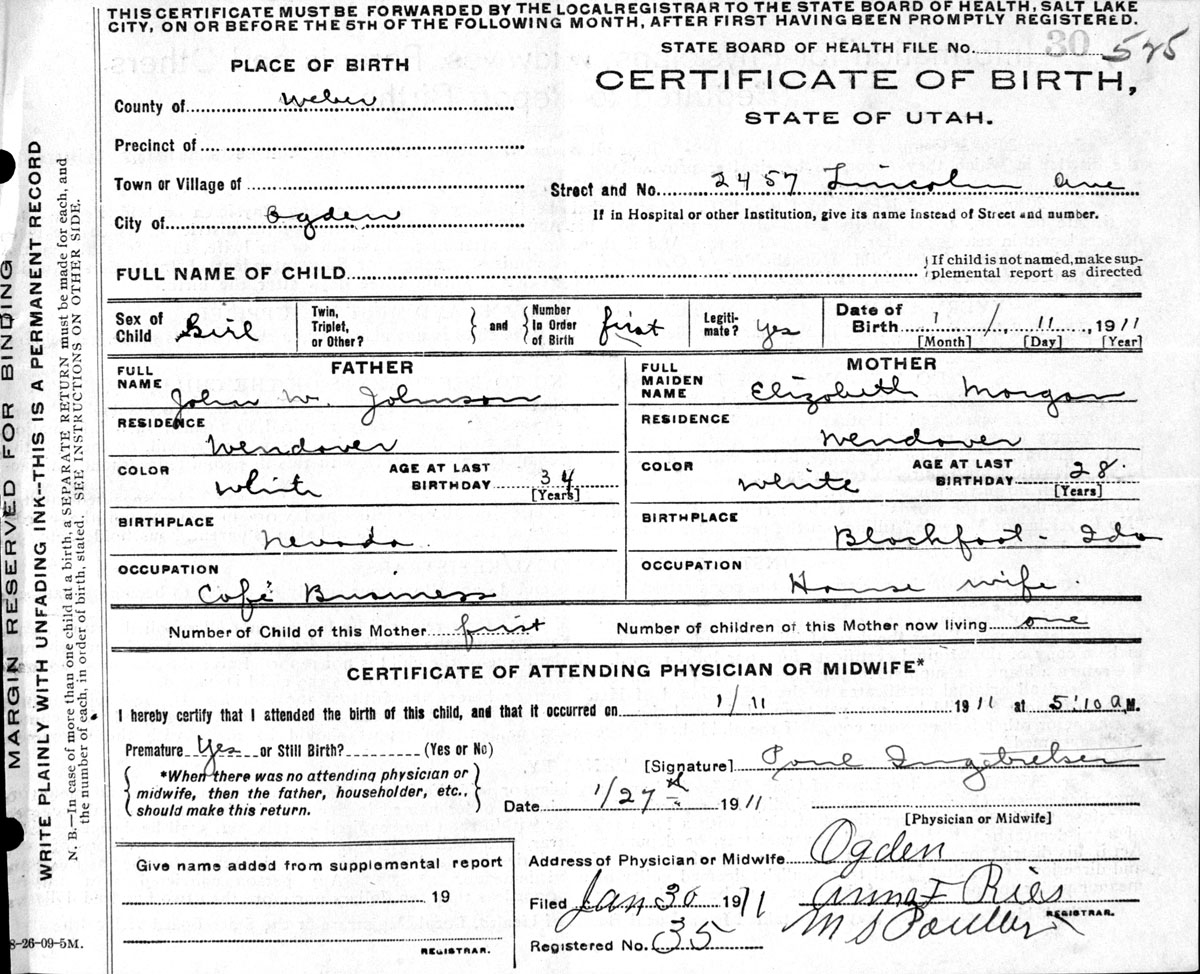 THIS CERTIFICATE MUST BE FORWARDED BY THE LOCAL REGISTRAR TO THE STATE BOARD OF HEALTH, SALT LAKE
CITY, ON OR BEFORE THE 5TH OF THE FOLLOWING MONTH, AFTER FIRST HAVING BEEN PROMPTLY REGISTERED.
STATE BOARD OF HEALTH FILE No. 30 525
PLACE OF BIRTH
CERTIFICATE OF BIRTH,
STATE OF UTAH.
County of Weber
Precinct of
Town or Village of
Street and No. 2457 Lincoln Ave
City of Ogden
If in Hospital or other Institution, give its name instead of Street and number.
FULL NAME OF CHILD {If child is not named, make sup-
plemental report as directed
Sex of Child Girl Twin, Triplet, or Other? } and { Number In Order of Birth first Legiti-mate? Yes Date of Birth 1 / 11, 1911
[Month] [Day] [Year]
FATHER
FULL NAME John W. Johnson
RESIDENCE Wendover
COLOR White AGE AT LAST BIRTHDAY 34 [Years]
BIRTHPLACE Nevada
OCCUPATION Café Business
MOTHER
FULL MAIDEN NAME Elizabeth Morgan
RESIDENCE Wendover
COLOR White AGE AT LAST BIRTHDAY 28. [Years]
BIRTHPLACE Blackfoot - Ida
OCCUPATION House wife.
Number of Child of this Mother first Number of children of this Mother now living one
CERTIFICATE OF ATTENDING PHYSICIAN OR MIDWIFE*
I hereby certify that I attended the birth of this child, and that it occurred on 1/11 1911 at 5:10 A M.
Premature Yes or Still Birth? (Yes or No)
{*When there was no attending physician or
midwife, then the father, householder, etc.,
should make this return.}
[Signature] Paul Ingebretsen
Date 1/27th 1911
[Physician or Midwife]
Give name added from supplemental report
19
REGISTRAR.
Address of Physician or Midwife Ogden
Filed Jan 30 1911 Anna F Ries
REGISTRAR.
Registered No. 35
MARGIN RESERVED FOR BINDING
WRITE PLAINLY WITH UNFADING INK--THIS IS A PERMANENT RECORD
N. B.—In case of more than one child at a birth, a SEPARATE RETURN must be made for each, and
the number of each, in order of birth, stated. SEE INSTRUCTIONS ON OTHER SIDE.
8-26-09-5M.